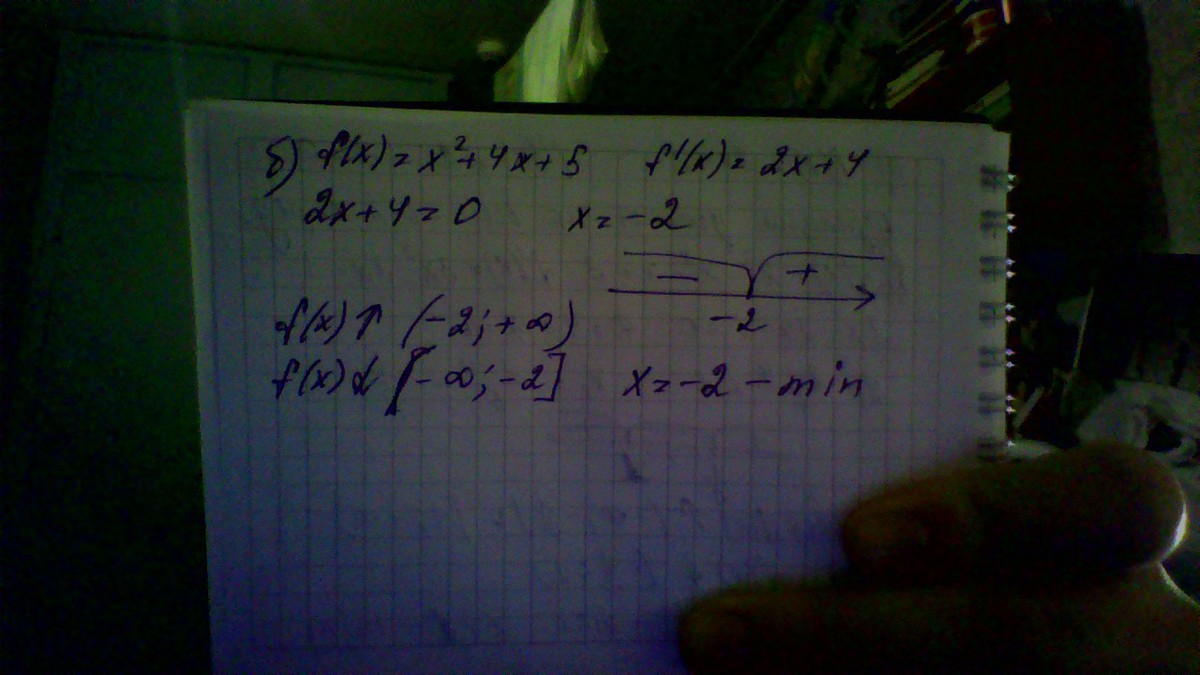 б) f(x) = x² + 4x + 5 f'(x) = 2x + 4
2x + 4 = 0 x = -2
− +
-2
f(x) ↑ (-2; + ∞)
f(x) ↓ (- ∞; -2] x = -2 - min